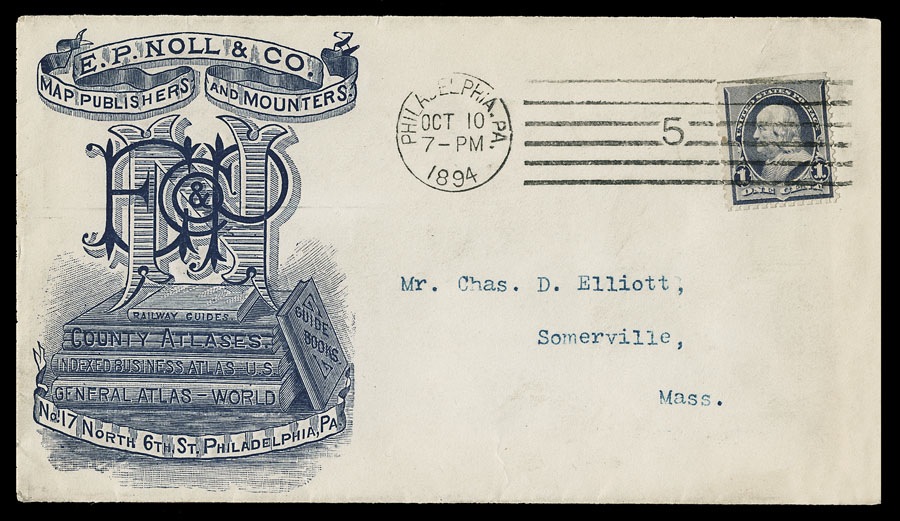 E. P. NOLL & CO.
MAP PUBLISHERS AND MOUNTERS.
E P N & CO
RAILWAY GUIDES.
COUNTY ATLASES.
INDEXED BUSINESS ATLAS U.S.
GENERAL ATLAS - WORLD
GUIDE
BOOKS.
No. 17 NORTH 6TH. ST. PHILADELPHIA, PA.
PHILADELPHIA, PA.
OCT 10
7-PM
1894
5
UNITED STATES POSTAGE
1 1
ONE CENT
Mr. Chas. D. Elliott,
Somerville,
Mass.